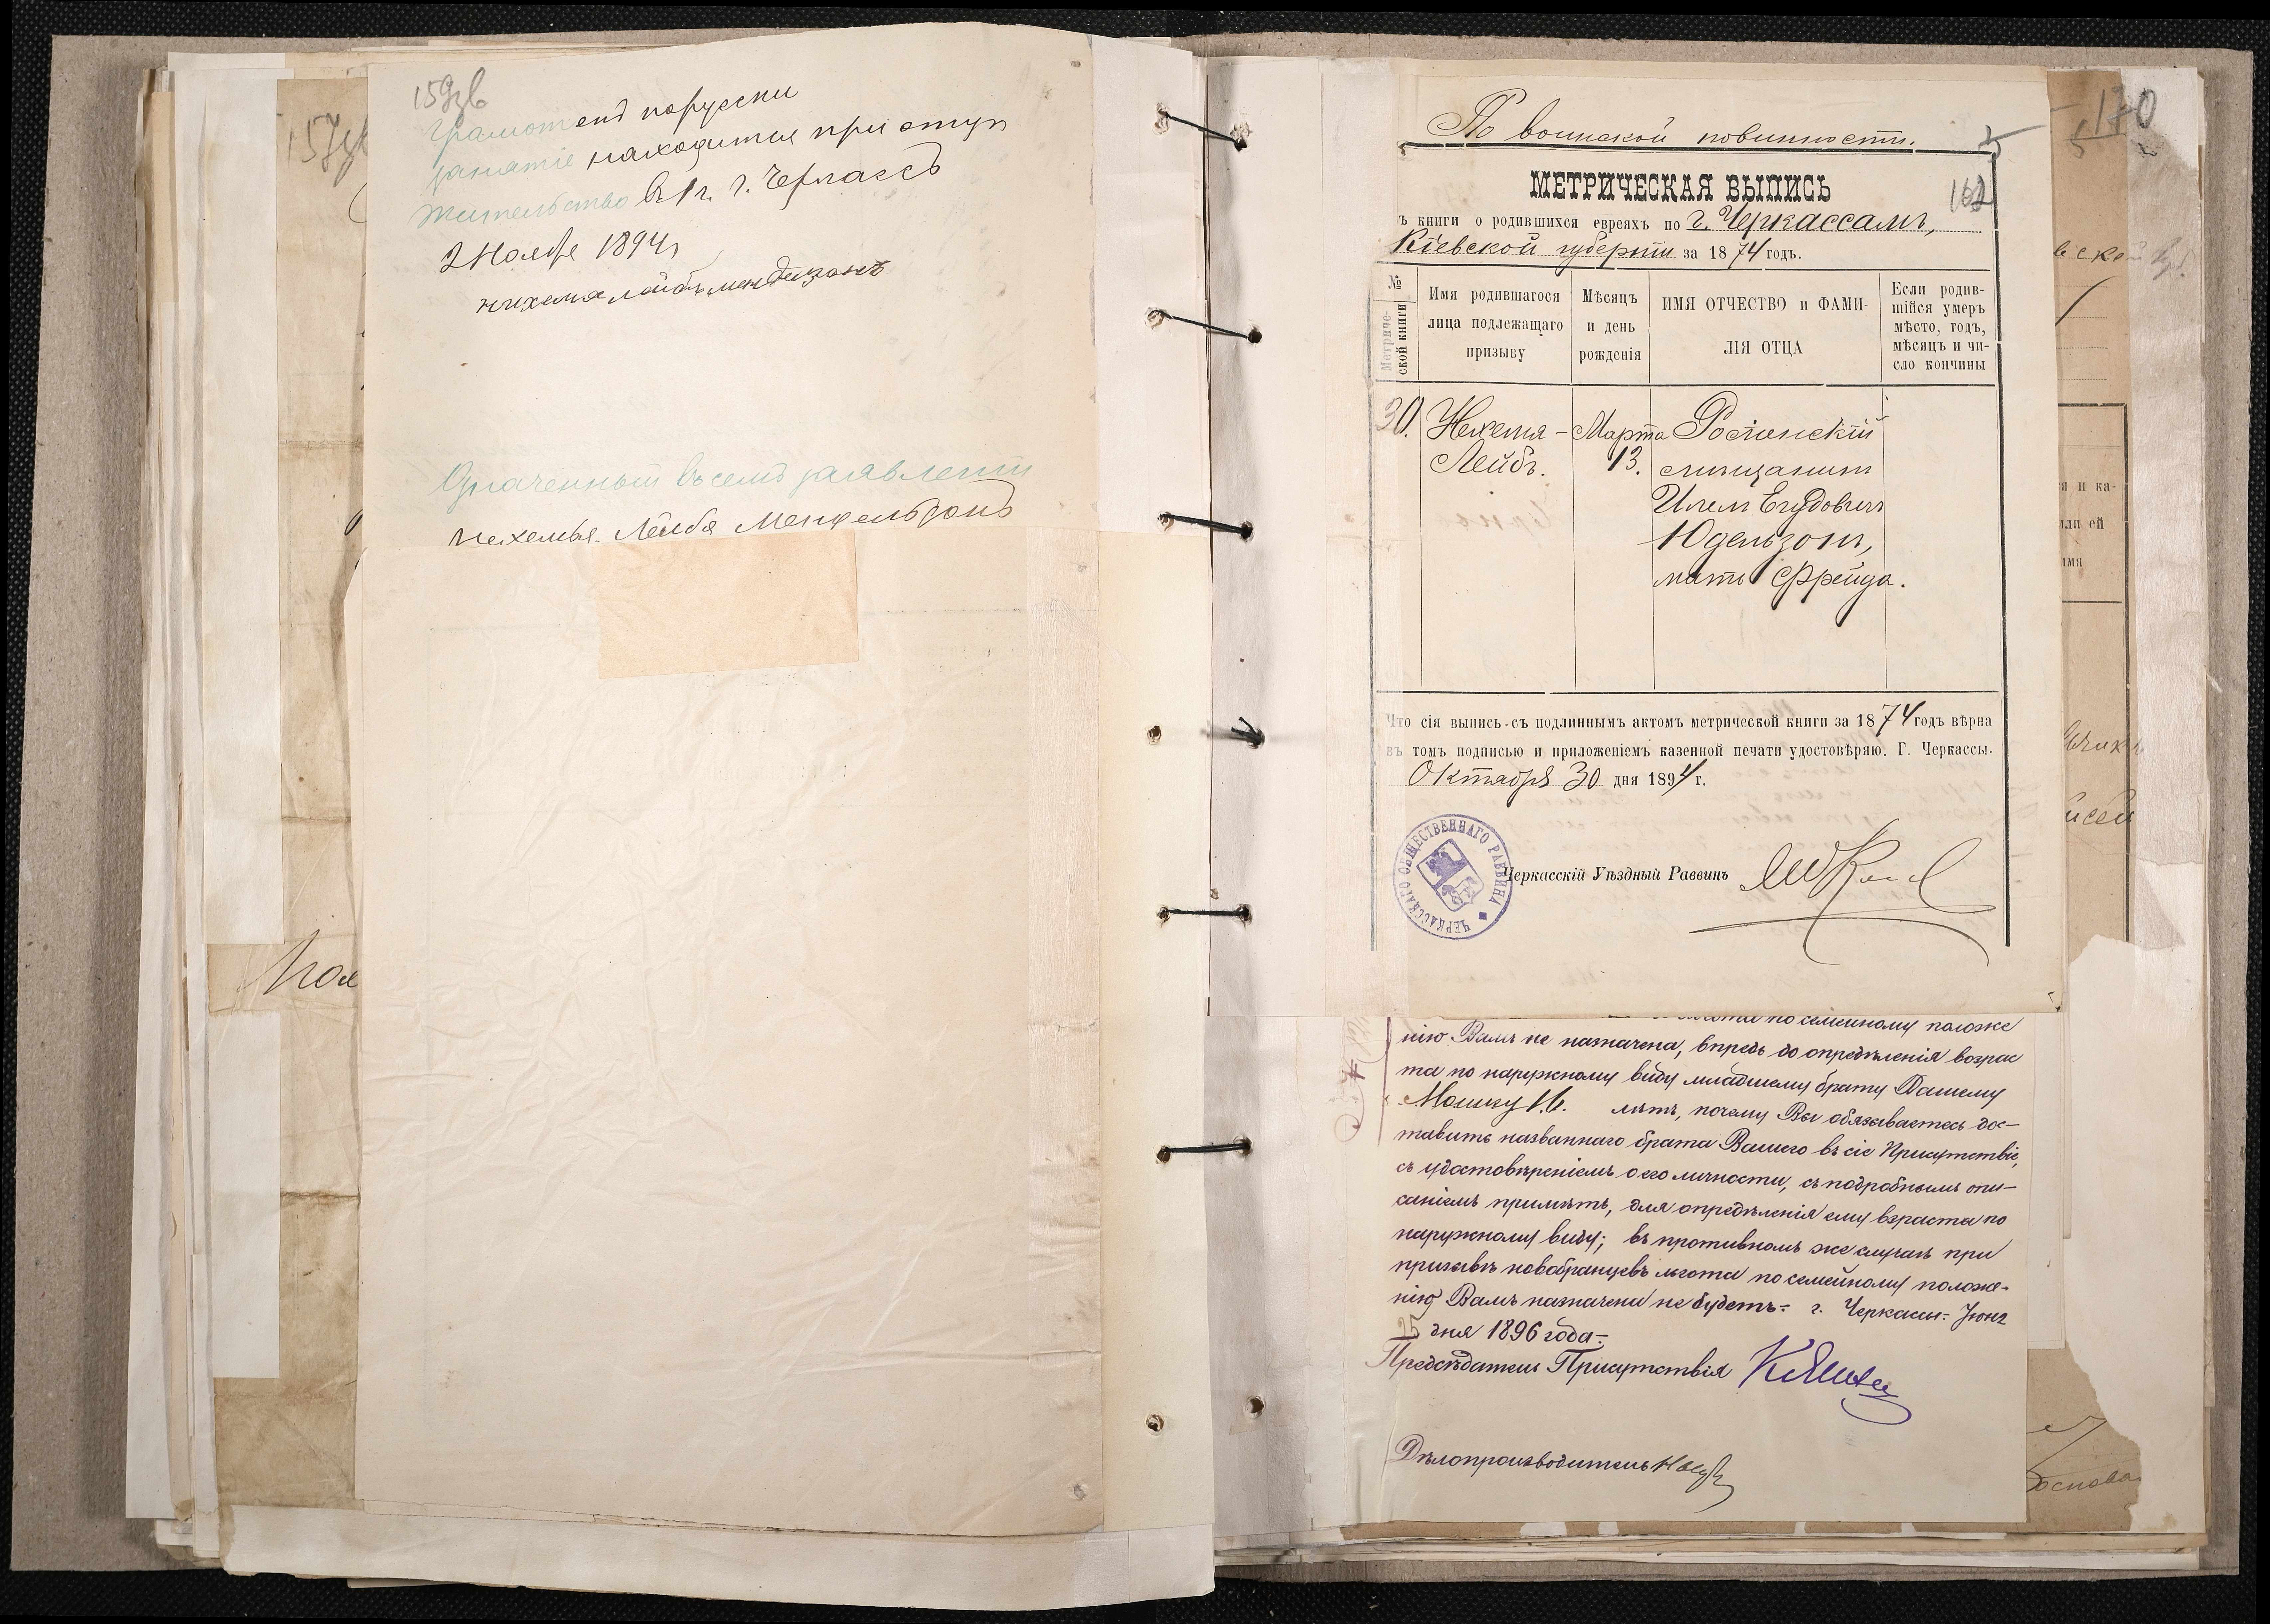 157зв
159зв
Грамотенъ порусски
занятіе находится при отцу
жительство въ 1 ч. г. Черкассъ
2 Ноября 1894 г
нихемя лейбъ мендизонъ
Означенный въ семъ заявленіи
Нихемья Лейба Мендельзонъ
Моя
По воинской повинности.
МЕТРИЧЕСКАЯ ВЫПИСЬ
162
ъ книги о родившихся евреяхъ по г. Черкассамъ,
Кіевской губерніи за 1874 годъ.
№ Метриче-ской книги
Имя родившагося лица подлежащаго призыву
Мѣсяцъ и день рожденія
ИМЯ ОТЧЕСТВО и ФАМИ-ЛІЯ ОТЦА
Если родив-шійся умеръ мѣсто, годъ, мѣсяцъ и чи-сло кончины
30.
Нехемя-
Лейбъ.
Марта
13.
мѣщанинъ
Юдельзонъ,
мать Фрейда.
Что сія выпись съ подлиннымъ актомъ метрической книги за 1874 годъ вѣрна
въ томъ подписью и приложеніемъ казенной печати удостовѣряю. Г. Черкассы.
Октября 30 дня 1894 г.
ЧЕРКАССКАГО ОБЩЕСТВЕННАГО РАВВИНА
Черкасскій Уѣздный Раввинъ
по семейному положе
нію Вамъ не назначена, впредь до опредѣленія возрас
та по наружному виду младшему брату Вашему
Мошку 16. лѣтъ, почему Вы обязываетесь дос-
тавить названнаго брата Вашего въ сіе Присутствіе,
съ удостовѣреніемъ о его личности, съ подробнымъ опи-
саніемъ примѣтъ, для опредѣленія ему взраста по
наружному виду; въ противномъ же случаѣ при
призывѣ новобранцевъ льгота по семейному положе-
нію Вамъ назначена не будетъ. г. Черкассы. Іюня
25 дня 1896 года.
Предсѣдатель Присутствія
Дѣлопроизводитель
170
я и ка-
или ей
имя